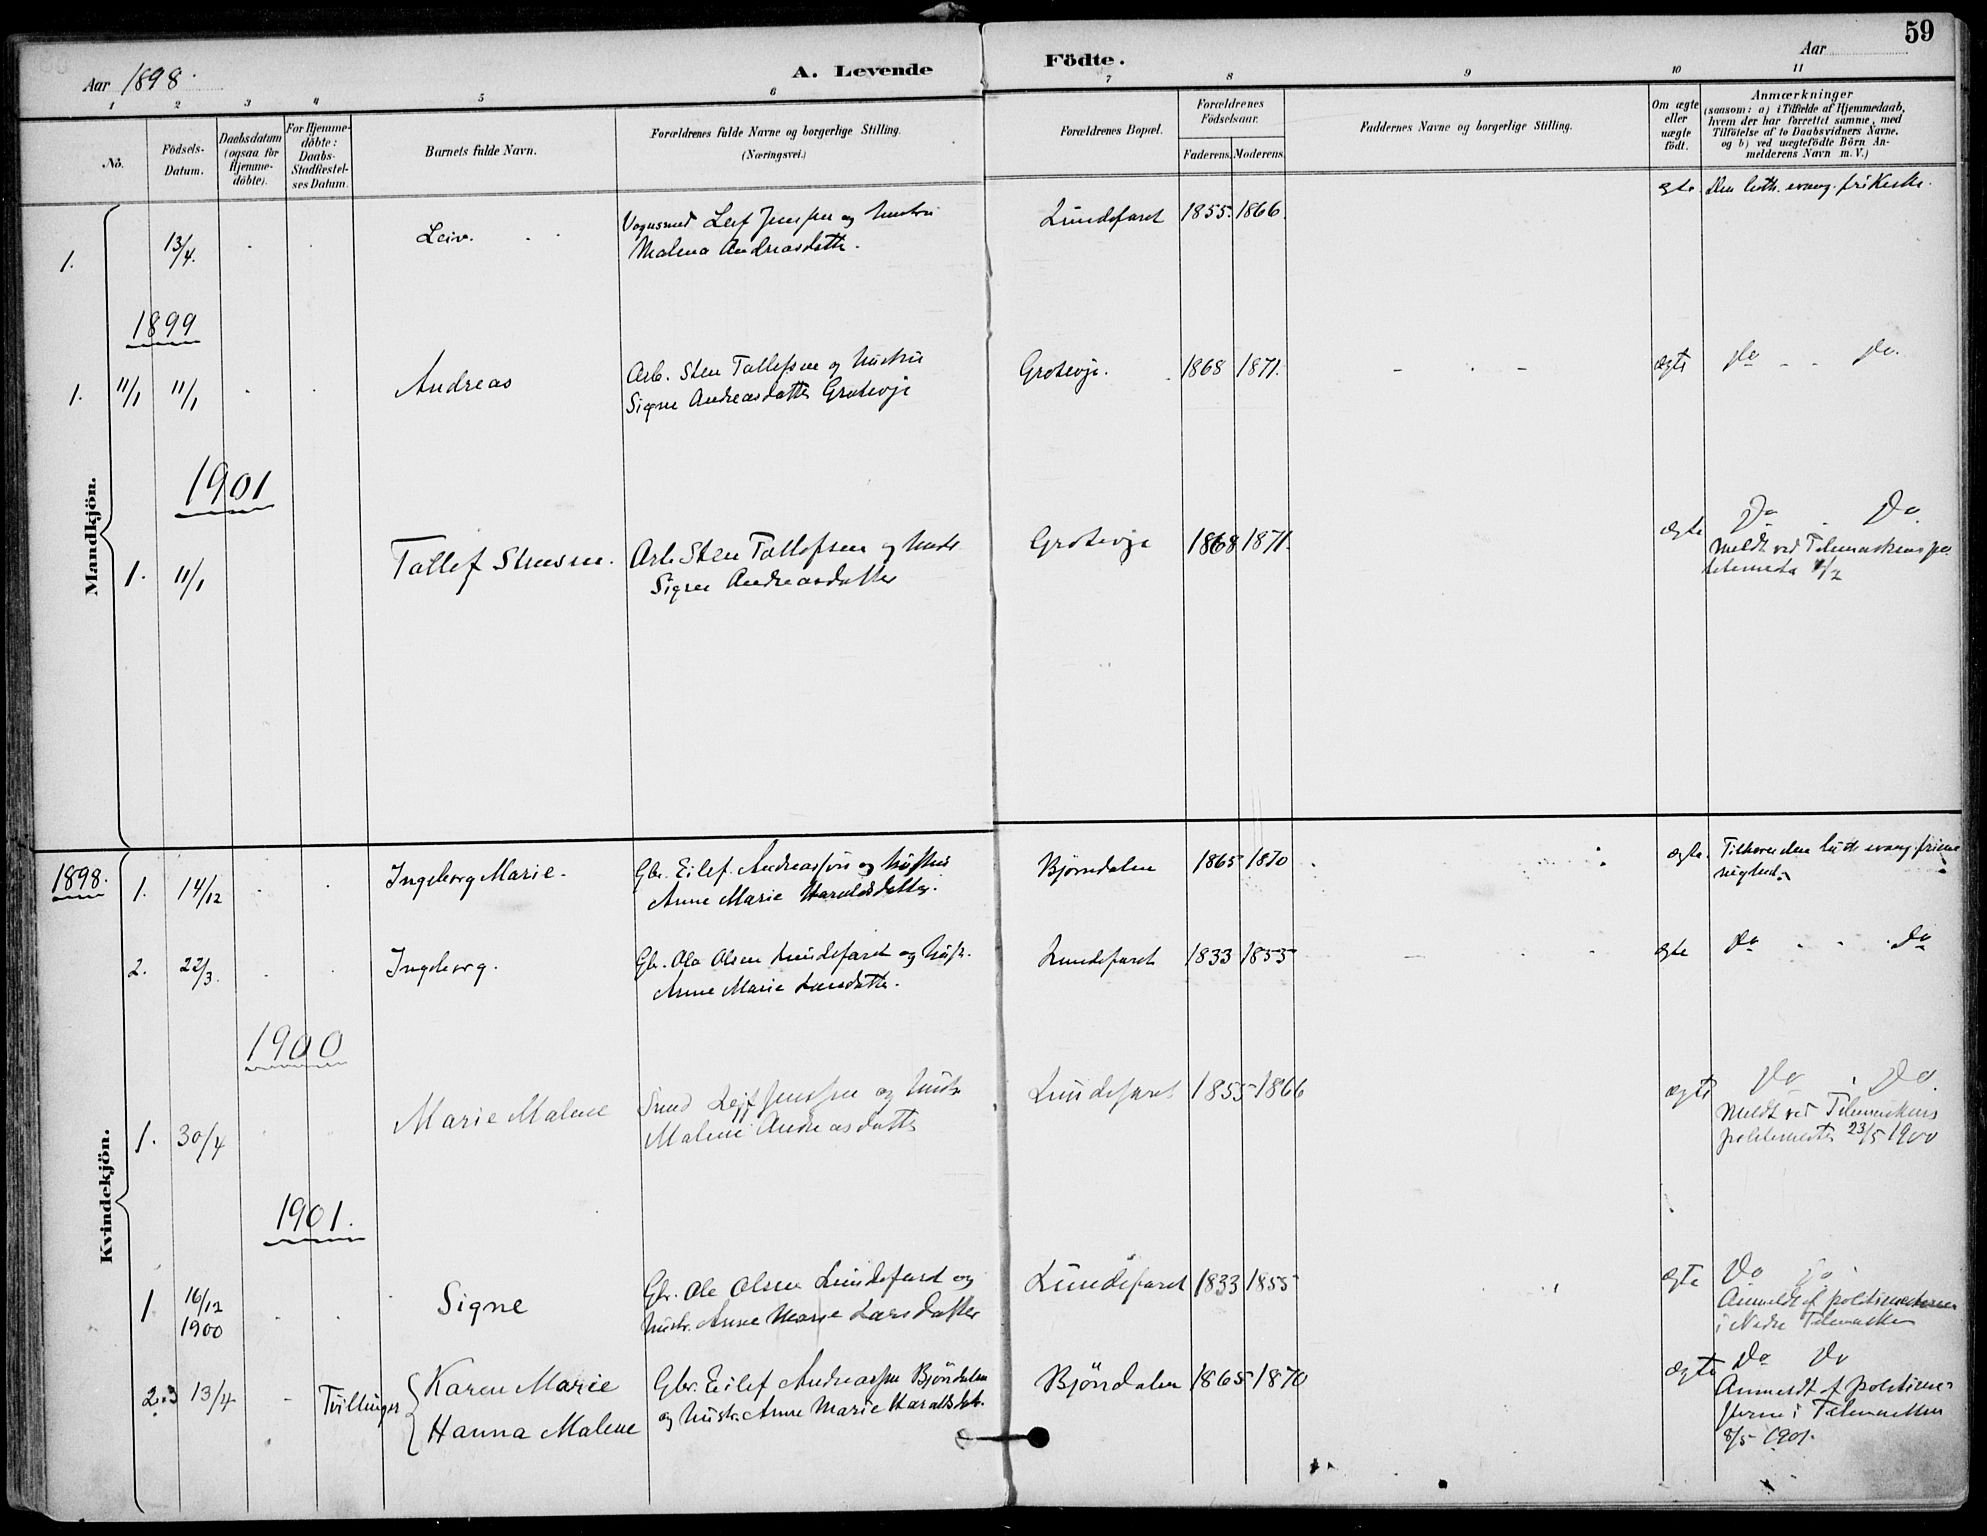 59
Aar 1898.
A. Levende Födte.
Aar
1 2 3 4 5 6 7 8 9 10 11
No.
Födsels-Datum.
Daabsdatum (ogsaa for Hjemme-döbte).
For Hjemme-döbte: Daabs-Stadfæstel-ses Datum.
Barnets fulde Navn.
Forældrenes fulde Navne og borgerlige Stilling.
(Næringsvei.)
Forældrenes Bopæl.
Forældrenes Födselsaar.
Faderens. Moderens.
Faddernes Navne og borgerlige Stilling.
Om ægte eller uægte födt.
Anmærkninger
(saasom: a) i Tilfælde af Hjemmedaab,
hvem der har forrettet samme, med
Tilföielse af to Daabsvidners Navne,
og b) ved uægtefödte Börn An-
melderens Navn m. V.)
Mandkjön.
1. 13/4. Leiv. Leif Jenssen og hustru Lundefaret 1855. 1866. ægte. Den luth. evang. frikirke.
Malena Andreasdatte.
1899
1. 11/1 11/1 Andreas Arb. Sten Tallefsen og hustru Grotevje. 1868 1871. ægte Do Do.
Signe Andreasdatter Grotevje
1901
1. 11/1 Tallef Stensen. Arb. Sten Tallefsen og hustr Grotevje 1868 1871. ægte Do Do
Signe Andreasdatter
Meldt ved Telemarkens po
Kvindekjön.
1898. 1. 14/12 Ingeborg Marie. Gbr. Eilef Andreassøn og hustru Bjørndalen 1865 1870 ægte. evang. frime
Anne Marie Haraldsdatter. nighed.
2. 22/3. Ingeborg. Gbr. Ole Olsen Lundefaret og hustr. Lundefaret 1833 1855 ægte Do Do
Anne Marie Larsdatte.
1900
1. 30/4 Marie Malene Smed Leif Jenssen og hustr Lundefaret 1855 1866 ægte Do Do.
Malene Andreasdatte
Meldt ved Telemarkens
politimester 23/5 1900
1901.
1 16/12 1900 Signe Gbr. Ole Olsen Lundefaret og Lundefaret 1833 1855 ægte Do Do
hustr. Anne Marie Larsdatter
Anmeldt af
i Nedre Telemarken
2.3 13/4 Tvillinger Karen Marie Gbr. Eilef Andreassen Bjöndalen Bjöndalen 1865 1870 ægte Do Do
Hanna Malene og hustr. Anne Marie Haraldsdatr.
Anmeldt af politime-
sterne i Telemarken
8/5 1901.